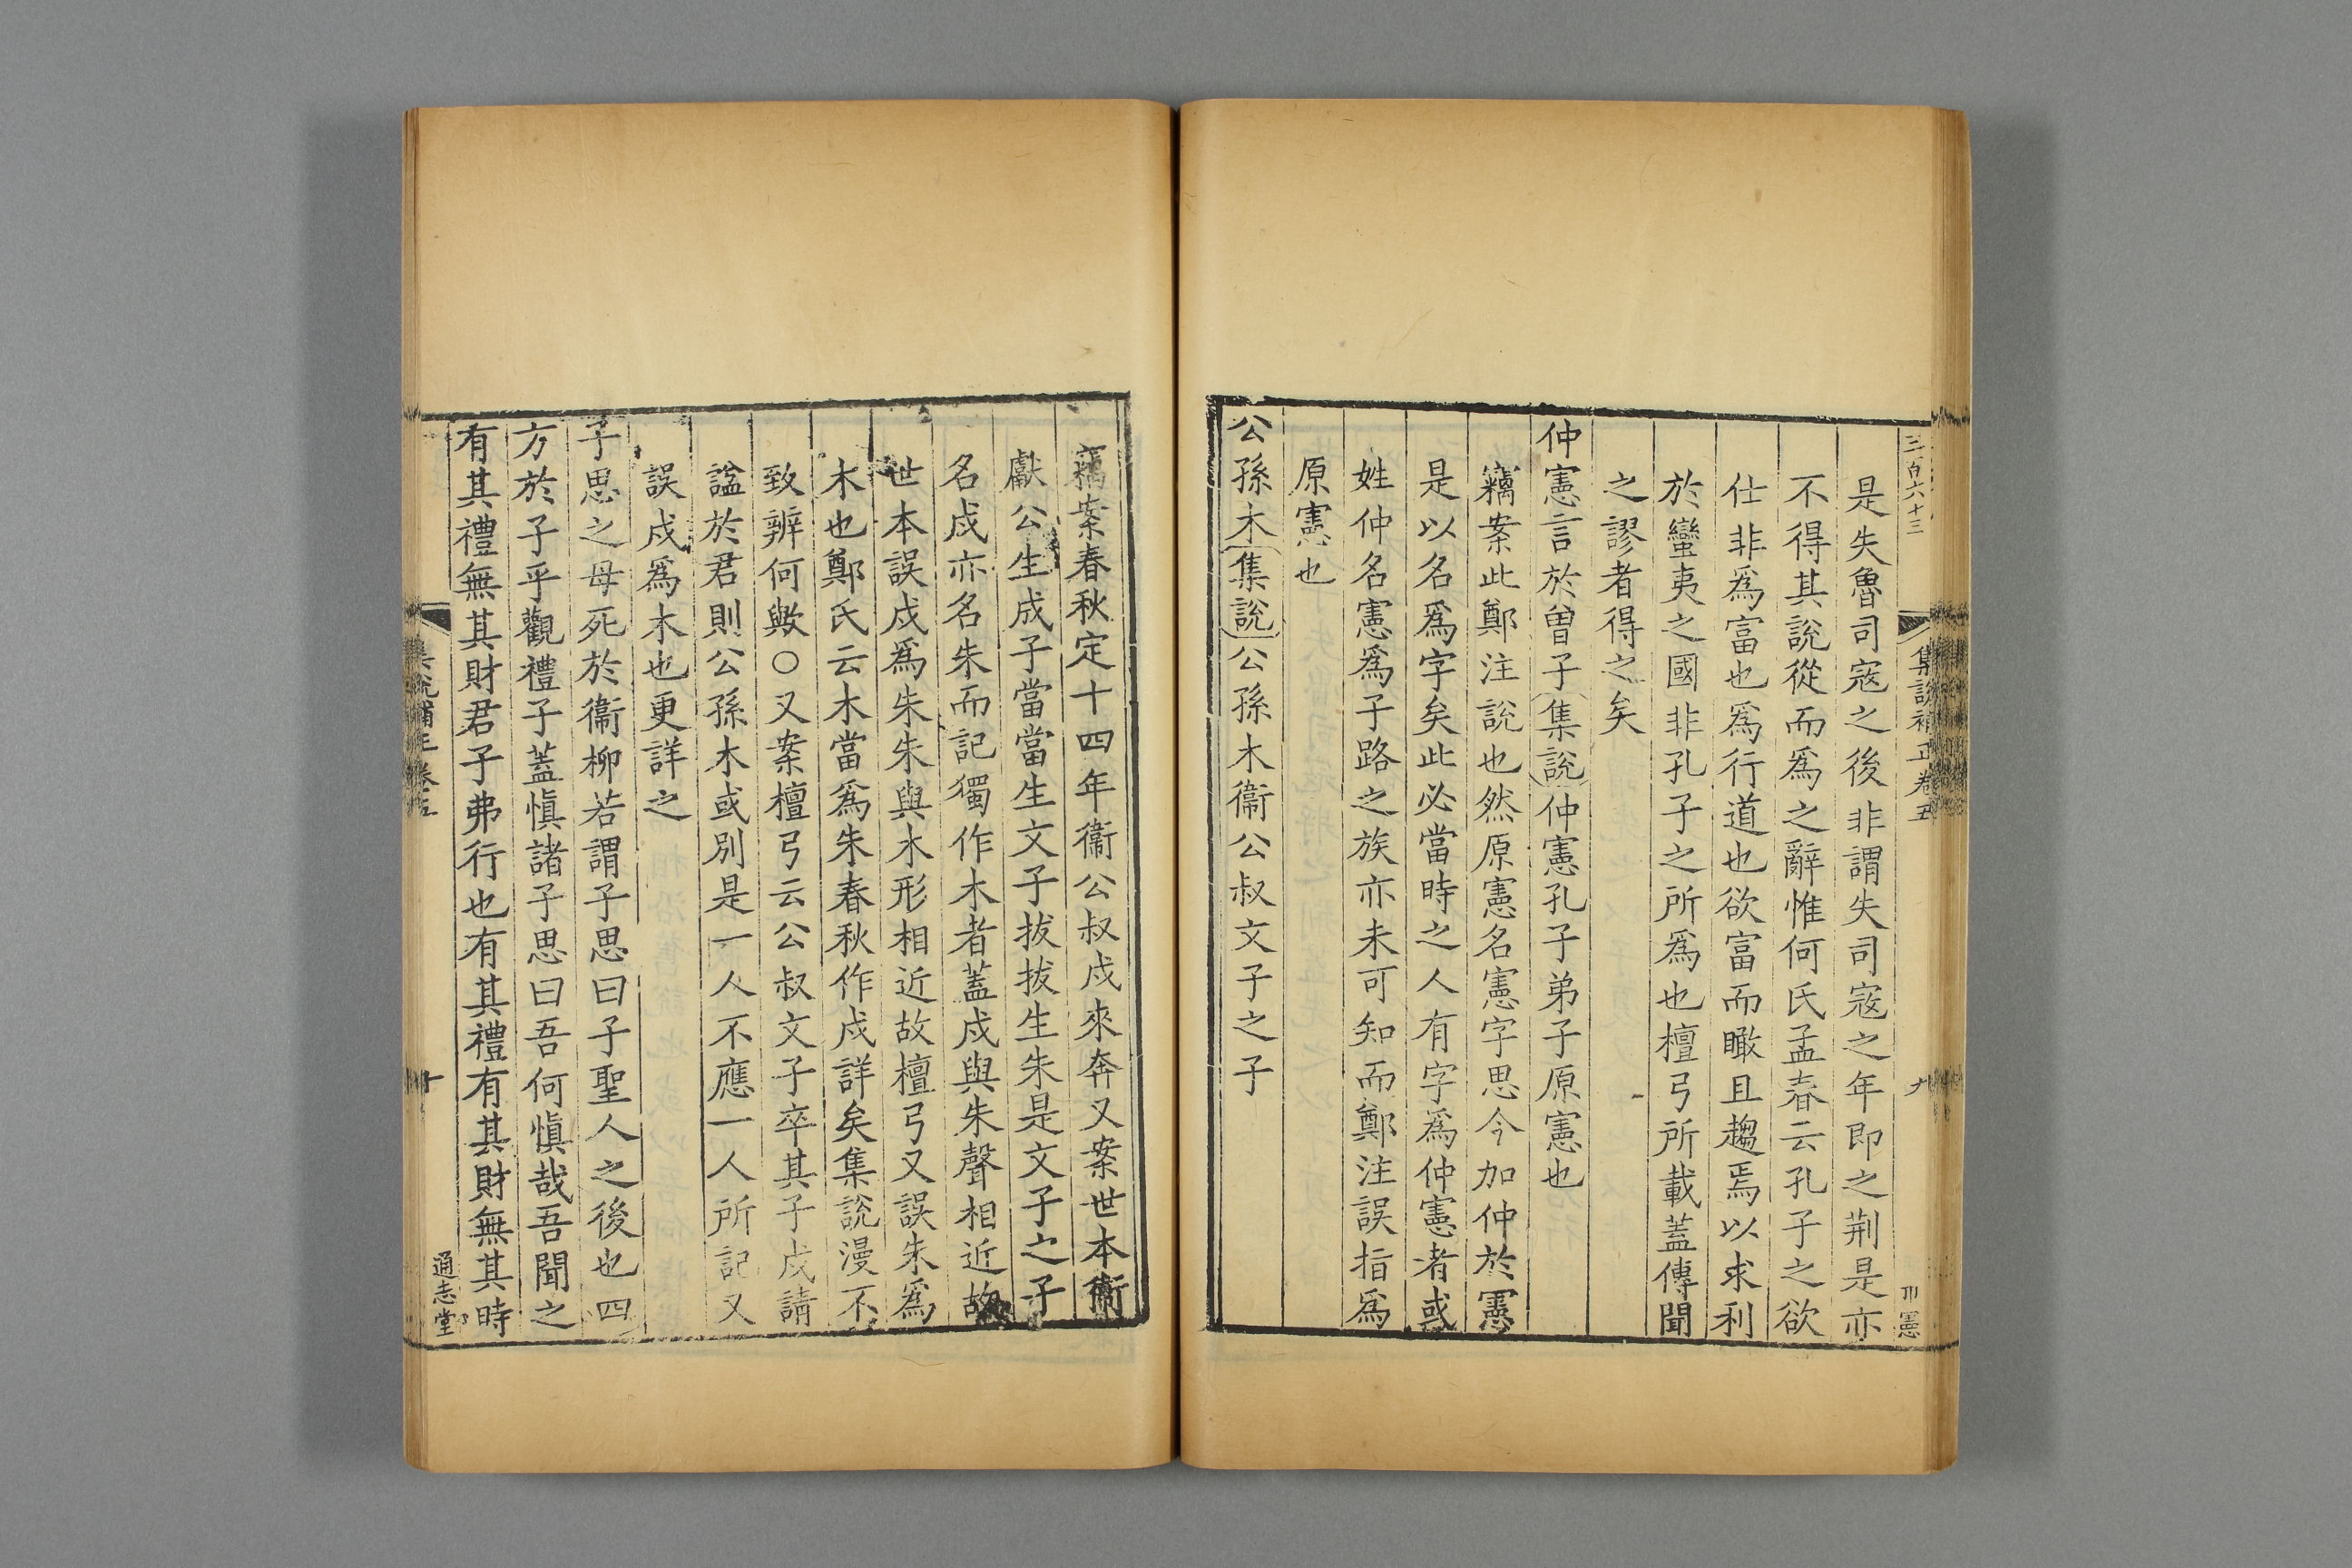 三百六十三
集說補正卷五
九
是失魯司寇之後非謂失司寇之年即之荆是亦
不得其說從而爲之辭惟何氏孟春云孔子之欲
仕非爲富也爲行道也欲富而瞰且趨焉以求利
於蠻夷之國非孔子之所爲也檀弓所載蓋傳聞
之謬者得之矣
仲憲言於曾子集說仲憲孔子弟子原憲也
竊案此鄭注說也然原憲名憲字思今加仲於憲
是以名爲字矣此必當時之人有字爲仲憲者或
姓仲名憲爲子路之族亦未可知而鄭注誤指爲
原憲也
公孫木集說公孫木衞公叔文子之子
竊案春秋定十四年衞公叔戍來奔又案世本衞
獻公生成子當當生文子拔拔生朱是文子之子
名戍亦名朱而記獨作木者蓋戍與朱聲相近故
世本誤戍爲朱朱與木形相近故檀弓又誤朱爲
木也鄭氏云木當爲朱春秋作戍詳矣集說漫不
致辨何歟○又案檀弓云公叔文子卒其子戍請
諡於君則公孫木或別是一人不應一人所記又
誤戍爲木也更詳之
子思之母死於衞柳若謂子思曰子聖人之後也四
方於子乎觀禮子蓋愼諸子思曰吾何愼哉吾聞之
有其禮無其財君子弗行也有其禮有其財無其時
集說補正卷五
十
通志堂